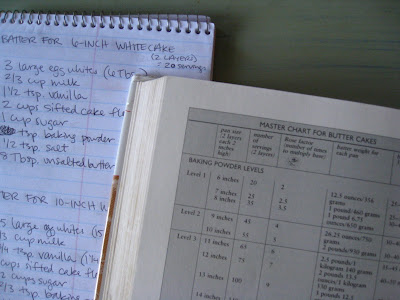 BATTER FOR 6-INCH WHITECAKE
(2 LAYERS)
= 20 servings
3 large egg whites (6 Tbs)
2/3 cup milk
1 1/2 tsp. vanilla
2 cups sifted cake
1 cup sugar
tsp. baking powder
1/2 tsp. salt
8 Tbsp. unsalted butter
FOR 10-INCH
large egg whites
cup milk
tsp. vanilla
cups sifted cake
cups sugar
tsp. baking
MASTER CHART FOR BUTTER CAKES
pan size
(2 layers
each 2
inches
high)
number
of
servings
(2 layers)
Rose factor
(number of times
to multiply base)
batter weight for
each pan
BAKING POWDER LEVELS
Level 1 6 inches 20 2 12.5 ounces/356
grams
7 inches 25
8 inches 35 3.5 1 pound/460 grams
1 pound 6.75
ounces/650 grams
Level 2 9 inches 45 4 26.25 ounces/750
grams
10 inches 55 5 2 pounds/950 grams
Level 3 11 inches 65 6 2.5 pounds/1
kilogram 140 grams
12 inches 75 7 2.75 pounds/1
kilogram
grams
13 inches 100 9
14 inches